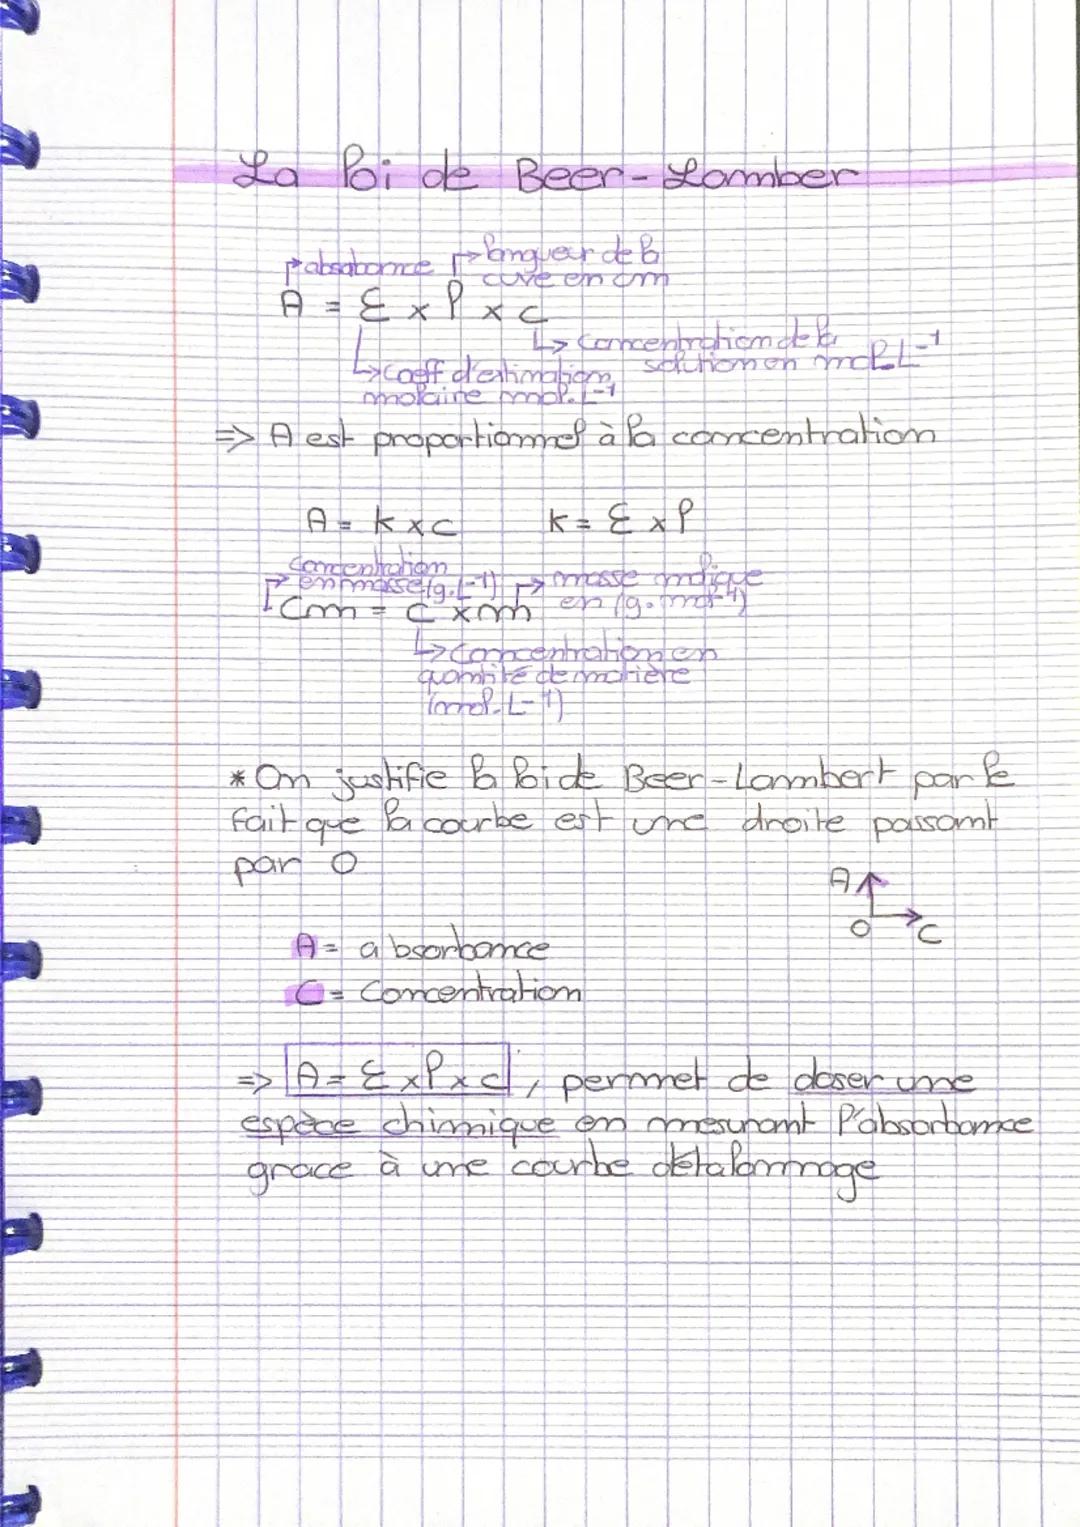 La loi de Beer-Lamber
absabance
longueur de la
cuve en cm
A = Ɛ x l x c
Concentration de la
solution en mol.L⁻¹
coeff d'extimation
molaire mol.L-1
=> A est proportionnel à la concentration
A = k x c k = Ɛ x l
Concentration
en masse (g.L-1) masse
en (g.mol-1)
Cm = C x m
concentration en
quantité de matière
(mol.L-1)
* On justifie la loi de Beer-Lambert par le
fait que la courbe est une droite passant
par O
A
O C
A = absorbance
C = Concentration
=> A = Ɛ x l x c, permet de doser une
espèce chimique en mesurant l'absorbance
grace à une courbe détalonnage